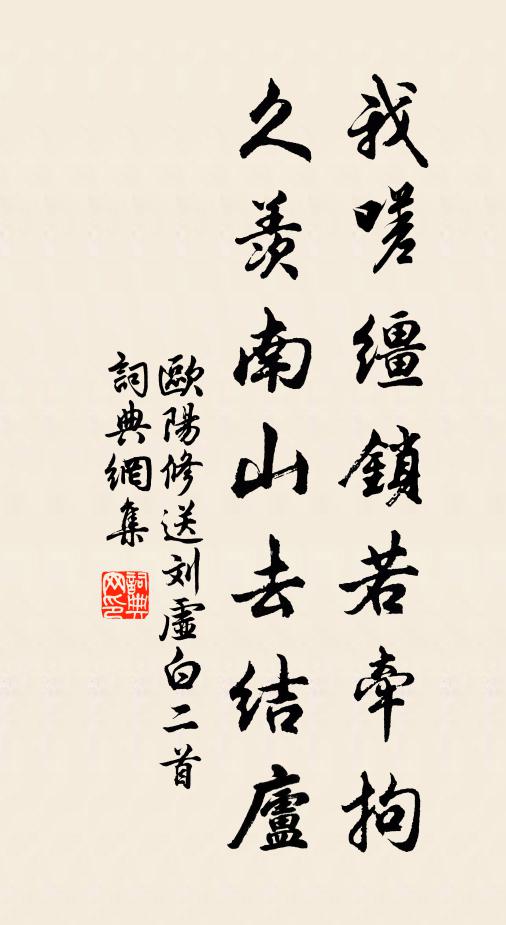 我嗟繮鎖若牽拘
久羨南山去結廬
歐陽修送刘虛白二首
詞典網集
詞典网印